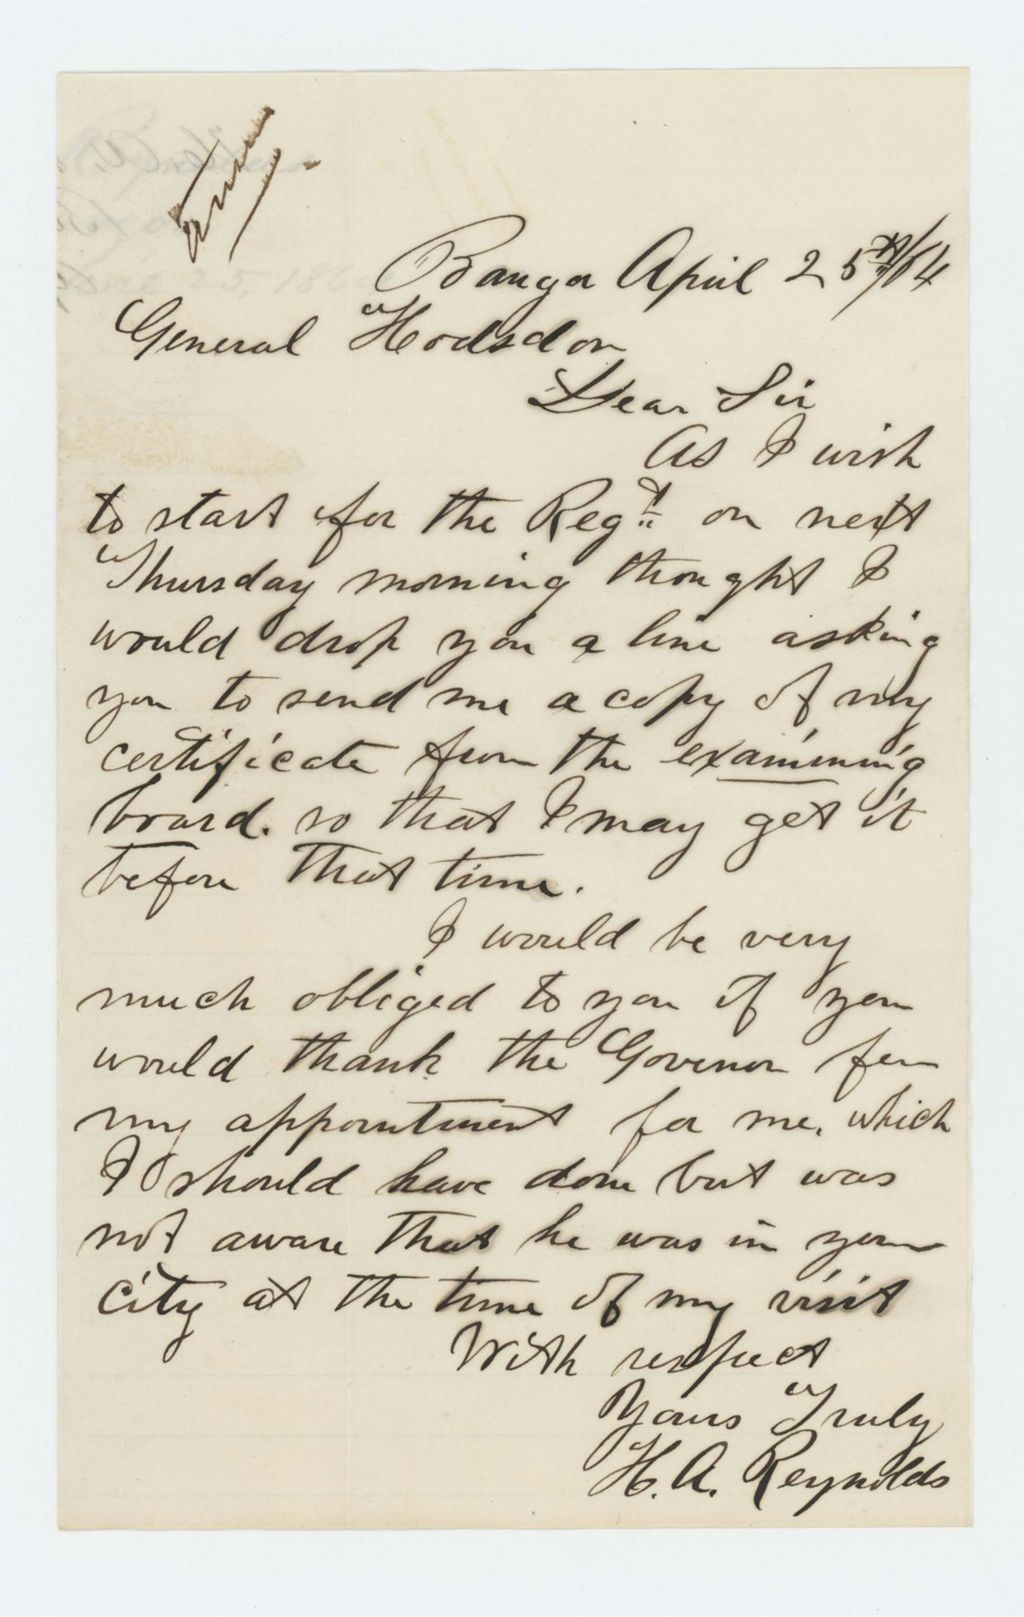 Bangor April 25th/64
General Hodsdon
Dear Sir
As I wish
to start for the Regt. on next
Thursday morning thought I
would drop you a line asking
you to send me a copy of my
certificate from the examining
board. so that I may get it
before that time.
I would be very
much obliged to you if you
would thank the Govenor for
my appointment for me, which
I should have done but was
not aware that he was in your
city at the time of my visit
With respect
Yours Truly
H. A. Reynolds